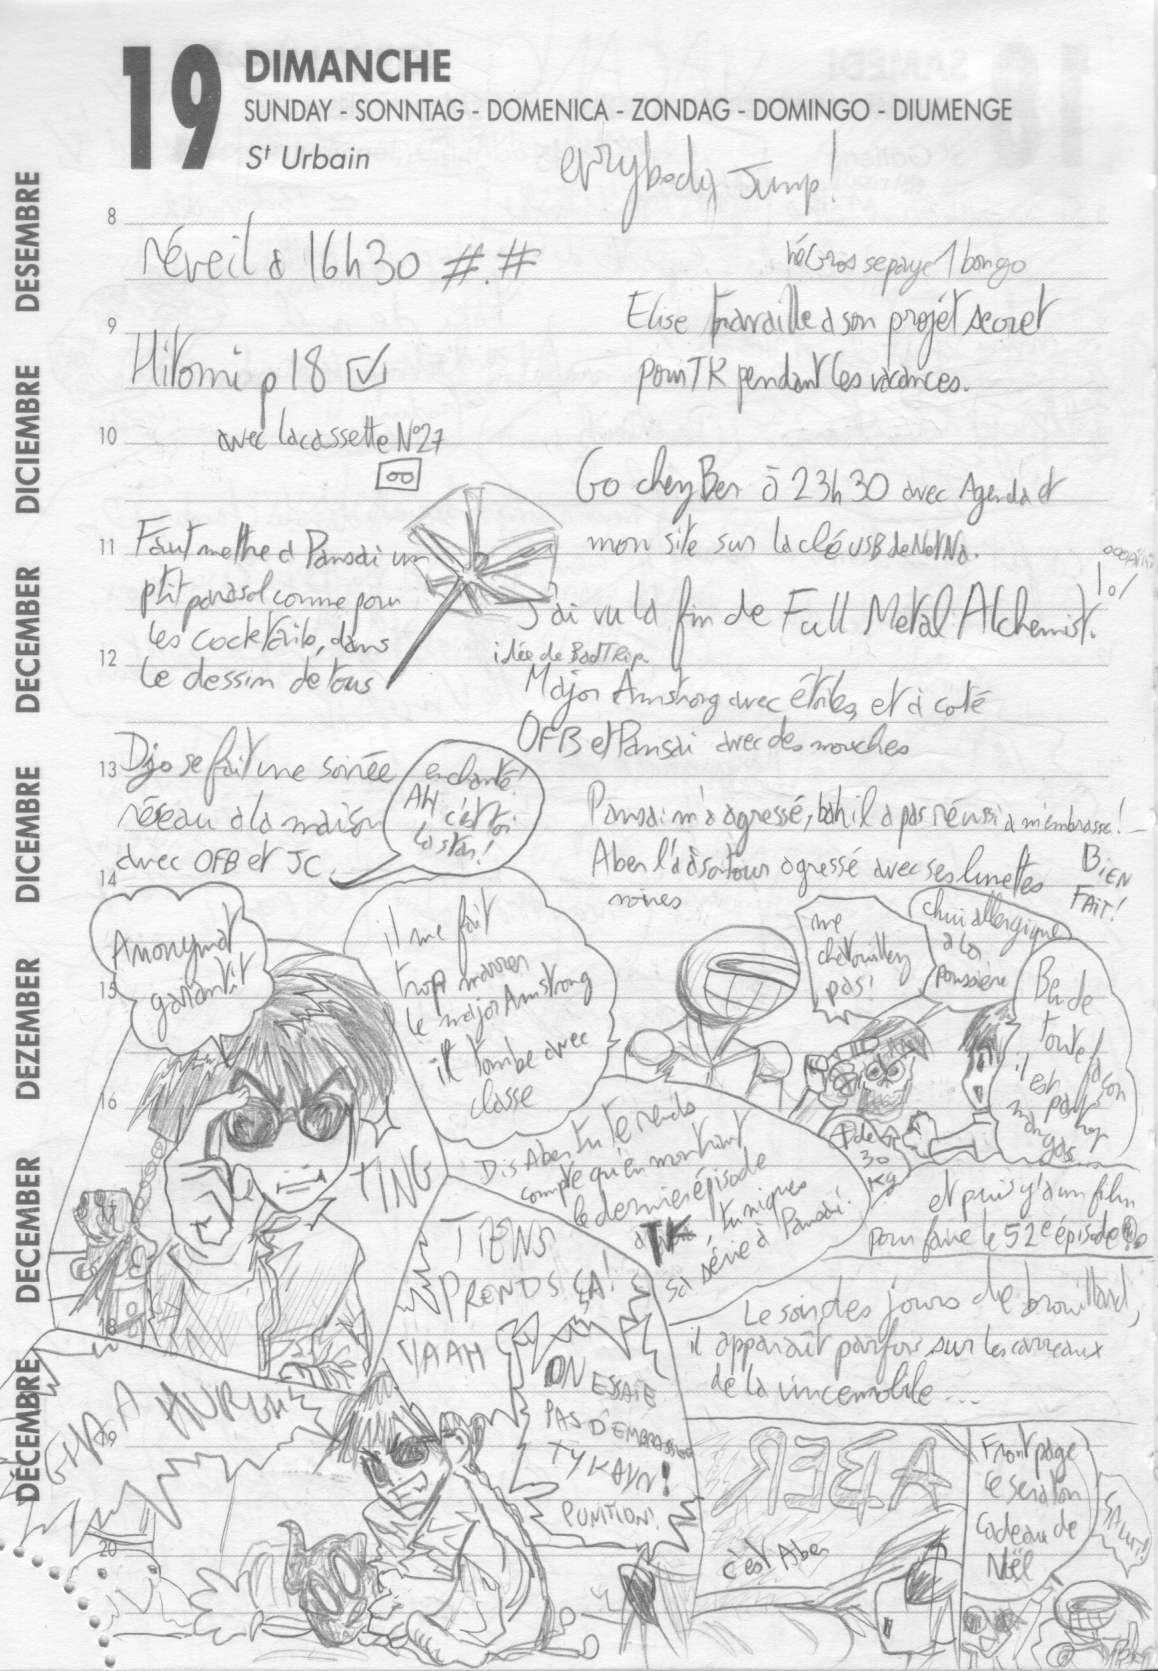 19 DIMANCHE
SUNDAY - SONNTAG - DOMENICA - ZONDAG - DOMINGO - DIUMENGE
St Urbain
DÉCEMBRE DECEMBER DEZEMBER DICEMBRE DECEMBER DICIEMBRE DESEMBRE
everybody Jump!
8
réveil à 16h30 #.#
se paye 1 bongo
Elise travaille à son projet secret
pour TK pendant les vacances.
9
Hitomi p 18
avec la cassette N°27
10
Go chez Ben à 23h30 avec Agenda et
mon site sur la clé USB de
11
Faut mettre à Pansai un
ptit parasol comme pour
les cocktails, dans
le dessin de tous
J'ai vu la fin de Full Metal Alchemist.
lol
12
idée de BadTRip
Major Armstrong avec étoiles, et à coté
OFB et Pansai avec des mouches
13
Djo se fait une soirée
réseau à la maison
avec OFB et JC.
enchanté!
AH c'est toi
la star!
Pansai m'a agressé, bah il a pas réussi à m'embrasser!
Aber l'a à son tour agressé avec ses lunettes
noires
BIEN
FAIT!
14
Anonymat
garantit
il me fait
trop marrer
le major Armstrong
il tombe avec
classe
me
chatouillez
pas!
chui allergique
à la
poussière
Ben de
toute façon
il est pas trop
mangas
15
16
TING
Dis Aber tu te rends
compte qu'en montrant
le dernier épisode
à TK, tu niques
sa série à Pansai.
30
Kg
et puis y'a un film
pour faire le 52e épisode
TIENS
PRENDS ÇA!
YAAH
ON ESSAIE
PAS D'EMBRASSER
TYKAYN!
PUNITION!
Le soir, des jours de brouillard,
il apparaît parfois sur les carreaux
de la vincemobile...
18
19
ABER
c'est Aber
Front page
ce sera ton
cadeau de
Noël
SALUT!
20